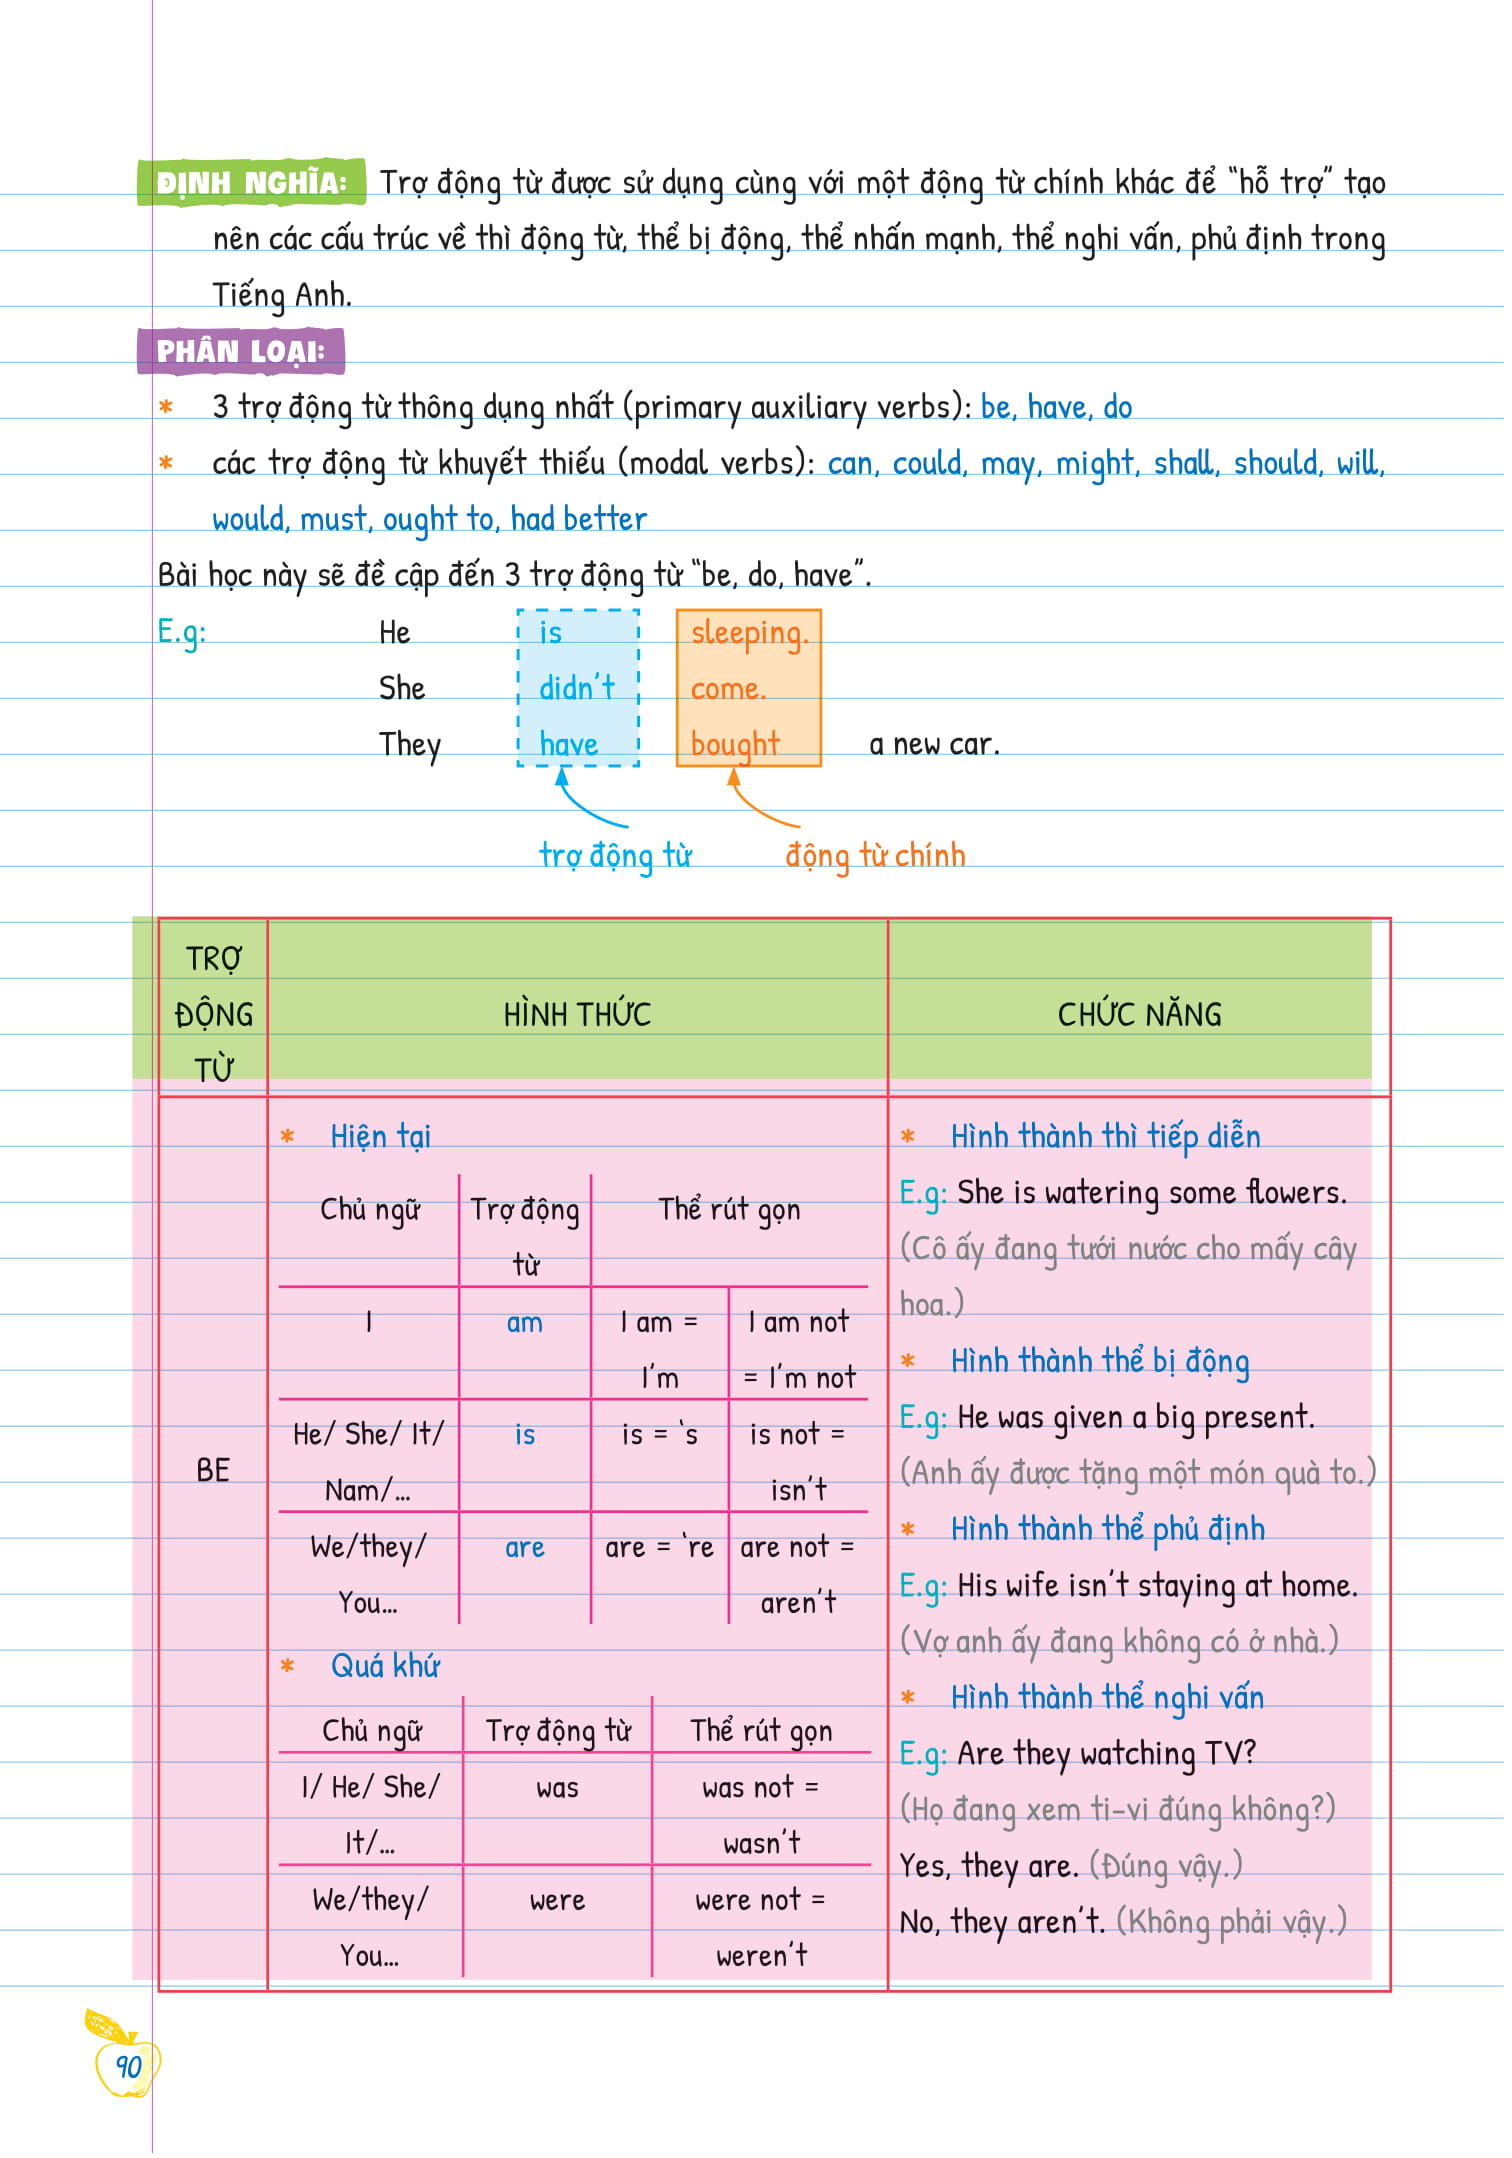 ĐỊNH NGHĨA: Trợ động từ được sử dụng cùng với một động từ chính khác để “hỗ trợ” tạo
nên các cấu trúc về thì động từ, thể bị động, thể nhấn mạnh, thể nghi vấn, phủ định trong
Tiếng Anh.
PHÂN LOẠI:
* 3 trợ động từ thông dụng nhất (primary auxiliary verbs): be, have, do
* các trợ động từ khuyết thiếu (modal verbs): can, could, may, might, shall, should, will,
would, must, ought to, had better
Bài học này sẽ đề cập đến 3 trợ động từ “be, do, have”.
E.g: He is sleeping.
She didn't come.
They have bought a new car.
trợ động từ động từ chính
TRỢ
ĐỘNG
TỪ
HÌNH THỨC
CHỨC NĂNG
BE
* Hiện tại
Chủ ngữ Trợ động Thể rút gọn
từ
I am I am = I am not
I'm = I'm not
He/ She/ It/ is is = ‘s is not =
Nam/... isn't
We/they/ are are = ‘re are not =
You... aren't
* Quá khứ
Chủ ngữ Trợ động từ Thể rút gọn
I/ He/ She/ was was not =
It/... wasn't
We/they/ were were not =
You... weren't
* Hình thành thì tiếp diễn
E.g: She is watering some flowers.
(Cô ấy đang tưới nước cho mấy cây
hoa.)
* Hình thành thể bị động
E.g: He was given a big present.
(Anh ấy được tặng một món quà to.)
* Hình thành thể phủ định
E.g: His wife isn't staying at home.
(Vợ anh ấy đang không có ở nhà.)
* Hình thành thể nghi vấn
E.g: Are they watching TV?
(Họ đang xem ti-vi đúng không?)
Yes, they are. (Đúng vậy.)
No, they aren't. (Không phải vậy.)
90